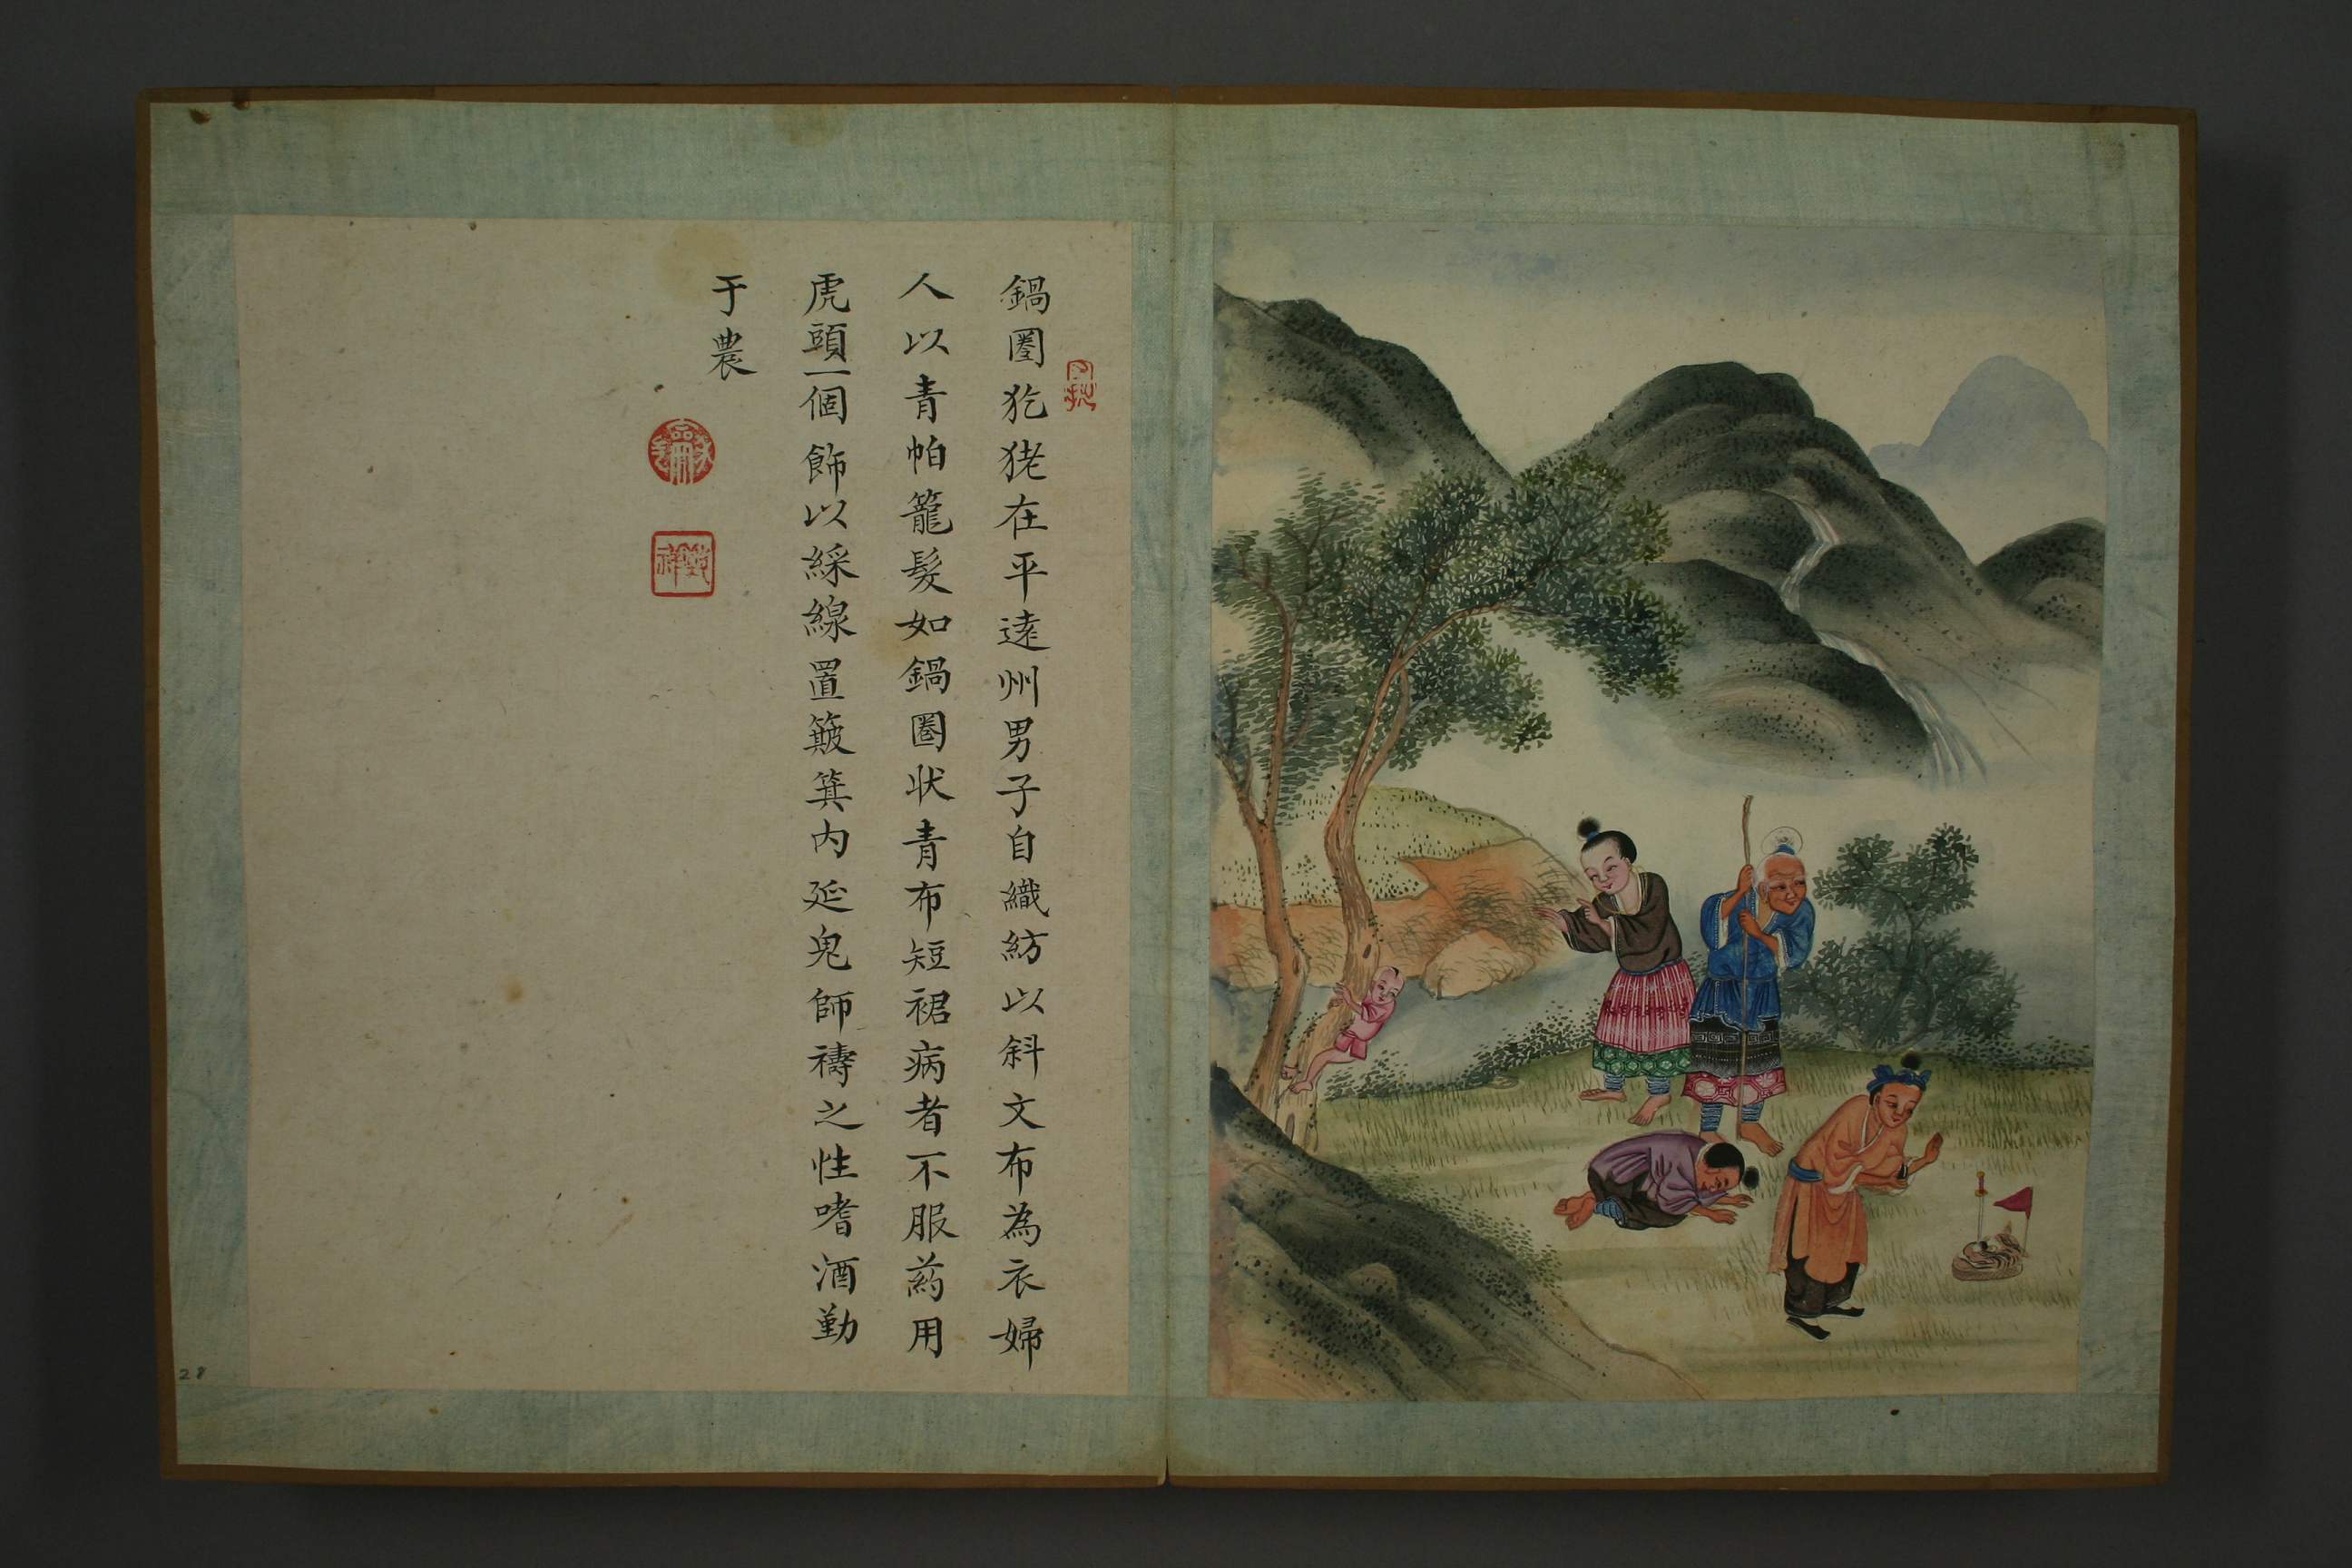 鍋圈犵狫在平遠州男子自織紡以斜文布為衣婦
人以青帕籠髮如鍋圈状青布短裙病者不服葯用
虎頭一個飾以綵線置簸箕內延鬼師禱之性嗜酒勤
于農
28